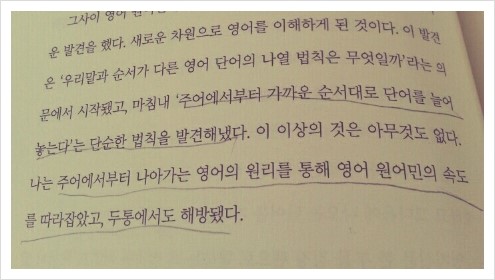 그사이 영어
운 발견을 했다. 새로운 차원으로 영어를 이해하게 된 것이다. 이 발견
은 '우리말과 순서가 다른 영어 단어의 나열 법칙은 무엇일까'라는 의
문에서 시작됐고, 마침내 '주어에서부터 가까운 순서대로 단어를 늘어
놓는다'는 단순한 법칙을 발견해냈다. 이 이상의 것은 아무것도 없다.
나는 주어에서부터 나아가는 영어의 원리를 통해 영어 원어민의 속도
를 따라잡았고, 두통에서도 해방됐다.